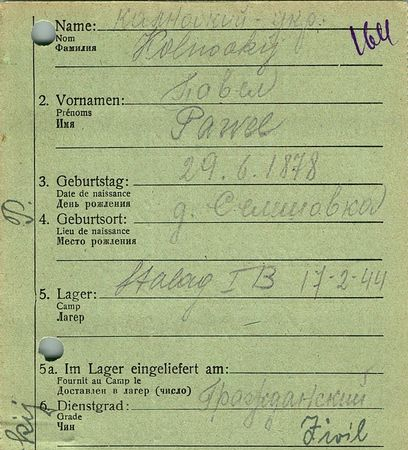 Name:
Nom
Фамилия
укр.
164
2. Vornamen: Павел
Prénoms
Имя
Pawel
3. Geburtstag: 29.6.1878
Date de naissance
День рождения
4. Geburtsort: д. Селиповка
Lieu de naissance
Место рождения
5. Lager: Stalag I B 17-2-44
Camp
Лагер
5a. Im Lager eingeliefert am:
Fournit au Camp le
Доставлен в лагер (число)
6. Dienstgrad: Гражданский
Grade
Чин
Zivil